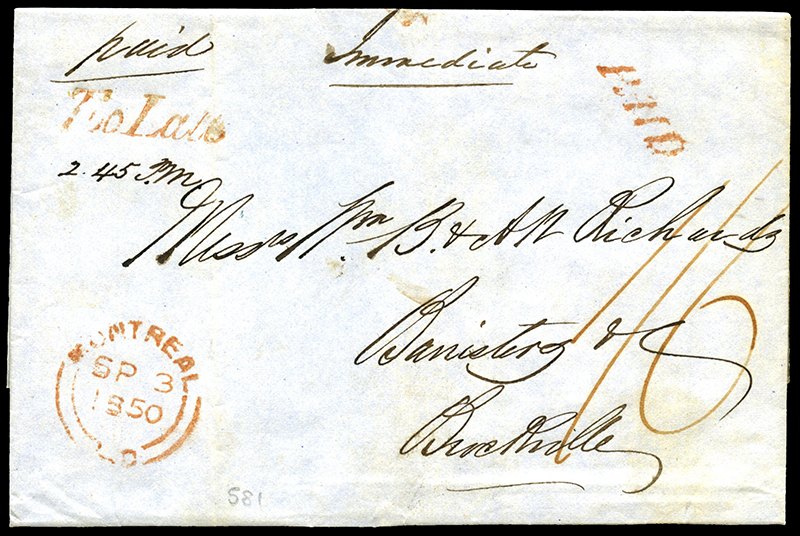 paid
Immediate
PAID
Too Late
2.45 P.M.
Messrs Wm B. & A N Richards
Barristers &
Brockville
MONTREAL
SP 3
1850
L.C
581